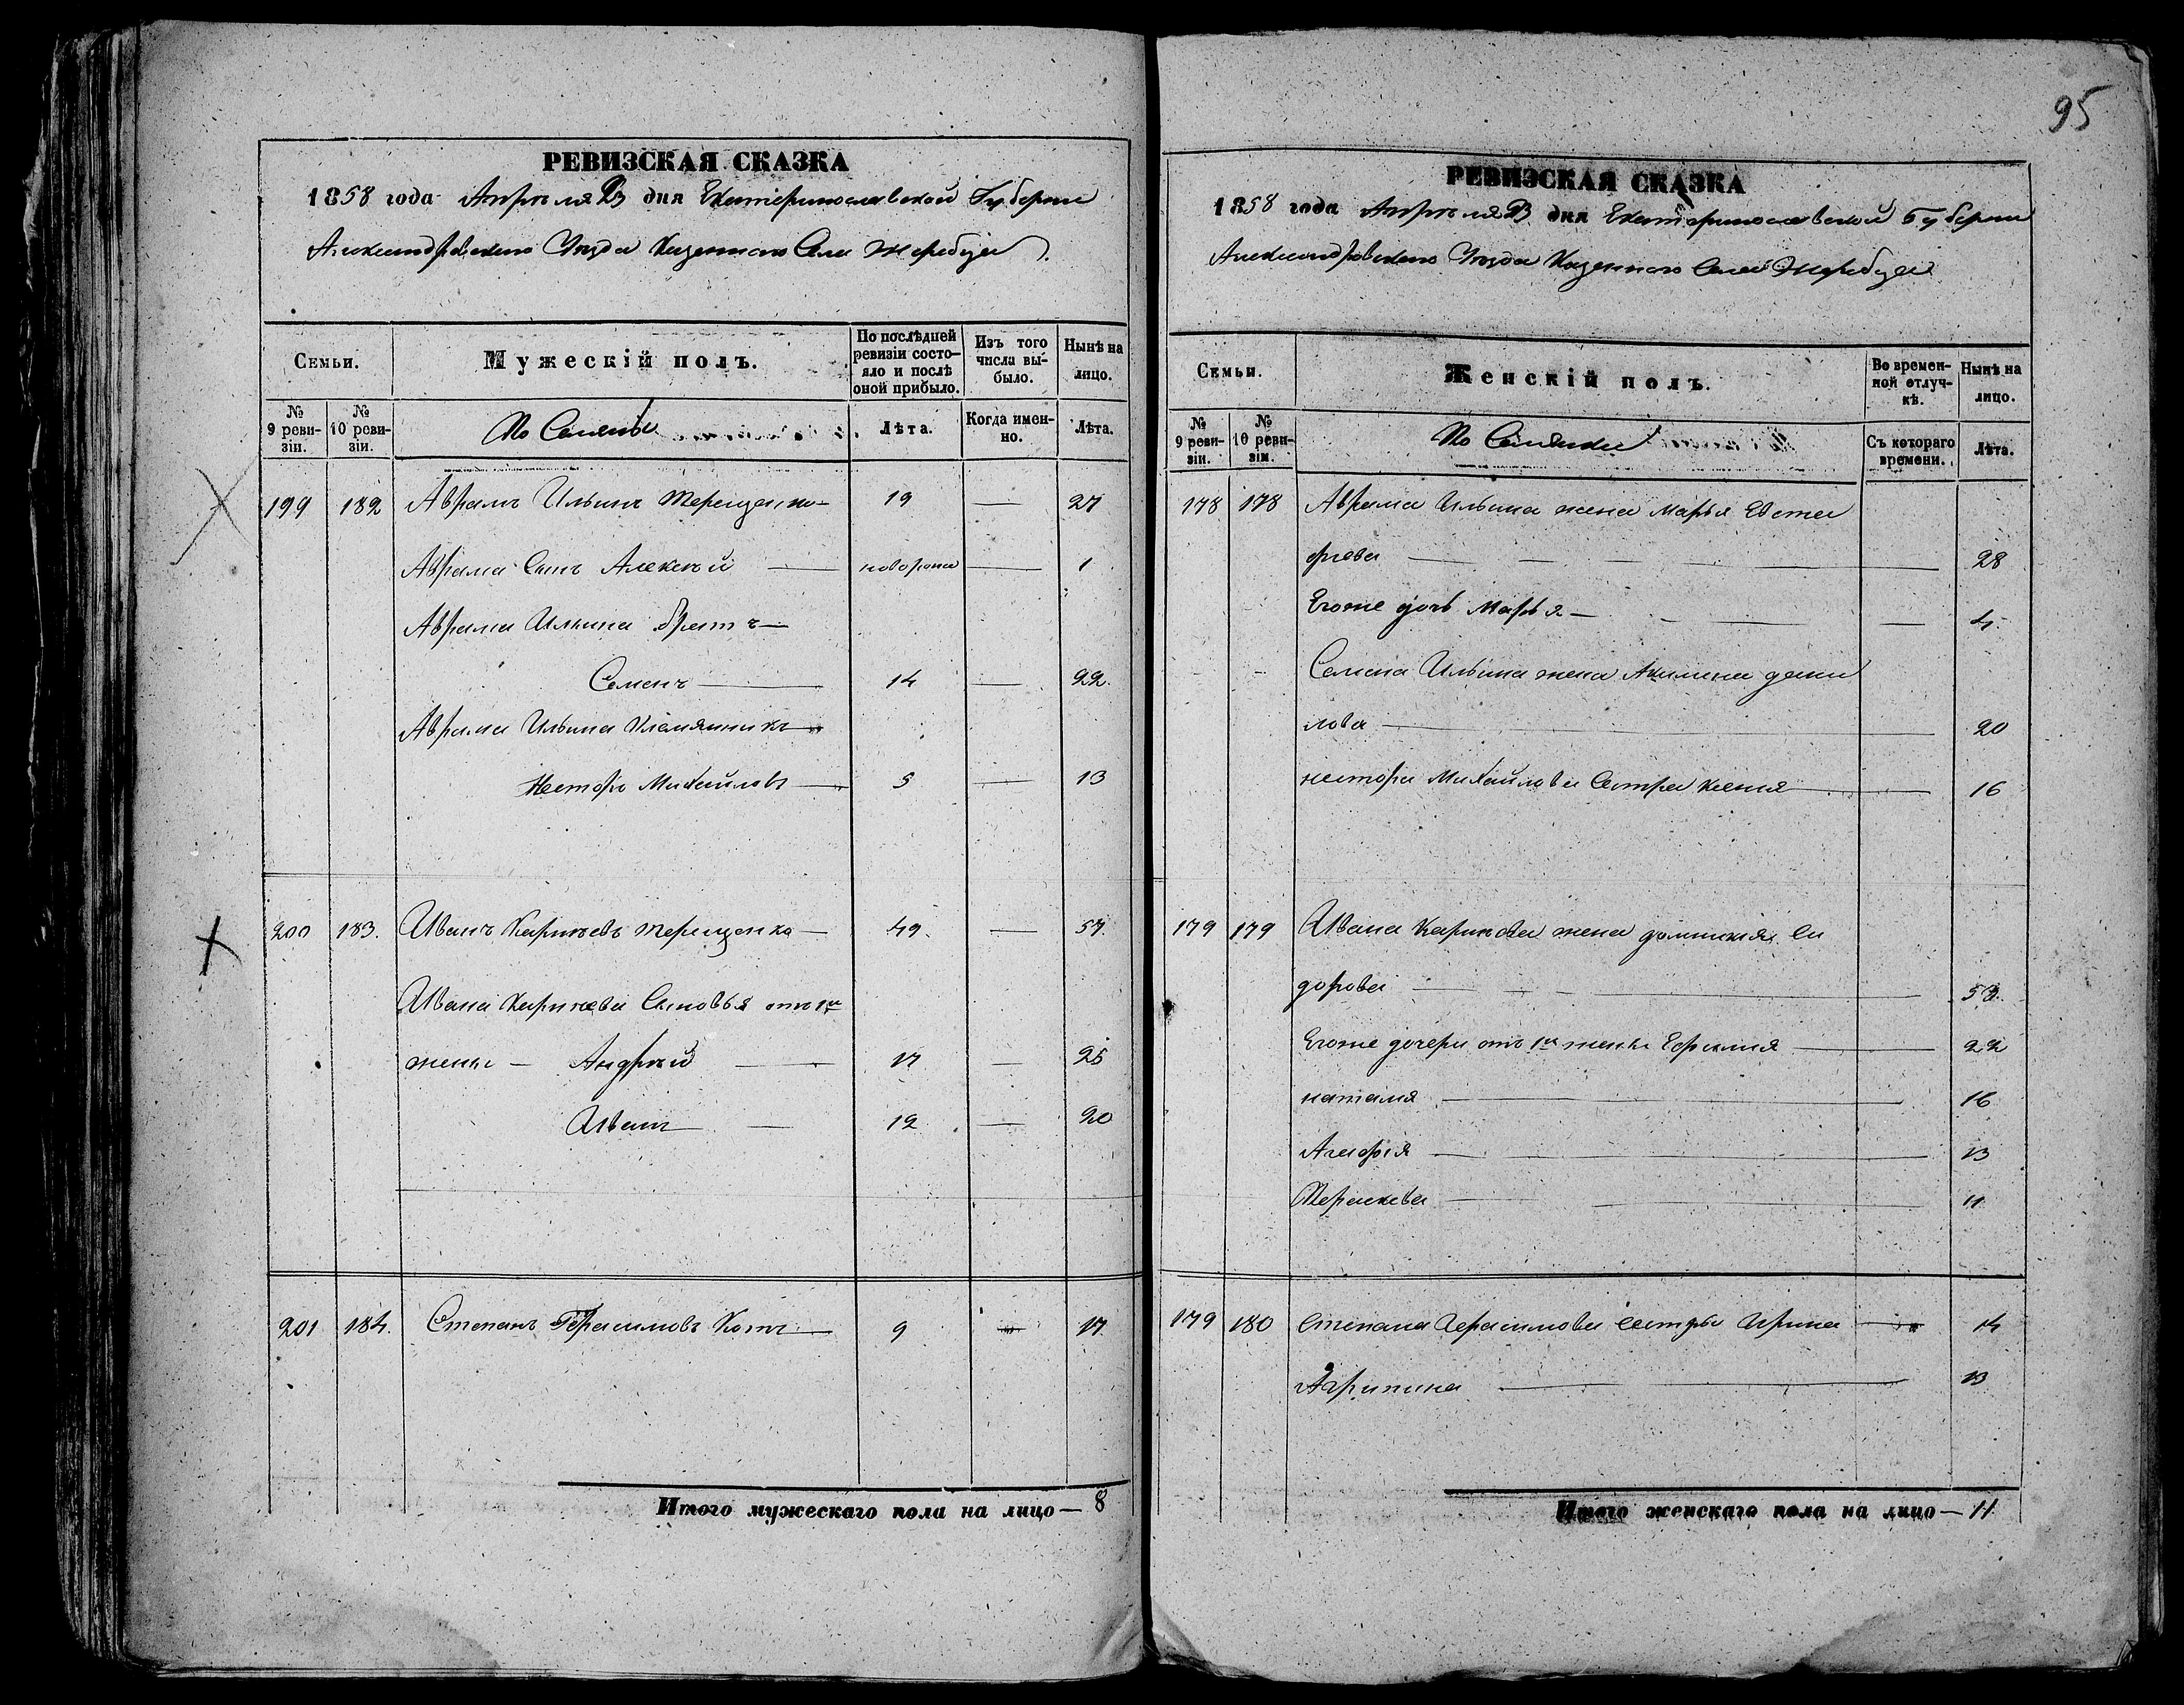 95
РЕВИЗСКАЯ СКАЗКА
1858 года Апрѣля дня Екатеринославской Губернии
Александровскаго Уѣзда Казеннаго Села Жеребца
Семьи. Мужескій полъ. По послѣдней ревизіи состояло и послѣ оной прибыло. Изъ того числа выбыло. Нынѣ на лицо.
№ 9 ревизіи. № 10 ревизіи. Лѣта. Когда именно. Лѣта.
199 182 Аврамъ Ильинъ Терещенко 19 — 27
Аврама Сынъ Алексѣй — новорожд — 1
Аврама Ильина братъ —
Семенъ — 14 — 22.
Аврама Ильина Племянникъ —
Несторъ Михайловъ — 5 — 13
200 183. Иванъ Карпѣевъ Терещенко — 49. — 57.
Ивана Карпѣева Сыновья отъ 1й
жены — Андрѣй — 17 — 25
Иванъ — 12 — 20
201 184. Степанъ Герасимовъ Котъ — 9 — 17
Итого мужескаго пола на лицо — 8
РЕВИЗСКАЯ СКАЗКА
1858 года Апрѣля дня Екатеринославской Губернии
Александровскаго Уѣзда Казеннаго Села Жеребца
Семьи. Женскій полъ. Во временной отлучкѣ. Нынѣ на лицо.
№ 9 ревизіи. № 10 ревизіи. Съ котораго времени. Лѣта.
178 178 Аврама Ильина жена Марья Евста
фиева — 28
Егоже дочь Марья — 4.
Семена Ильина жена Акилина дани
лова — 20
нестора Михайлова Сестра Ксения — 16
179 179 Ивана Карпова жена домникия Си
дорова — 53.
Егоже дочери отъ 1й жены Ефимия — 22
наталя — 16
Агафия — 13
Параскева — 11
179 180 Степана Герасимова сестры Ирина — 14
Агрипина — 13
Итого женскаго пола на лицо — 11.